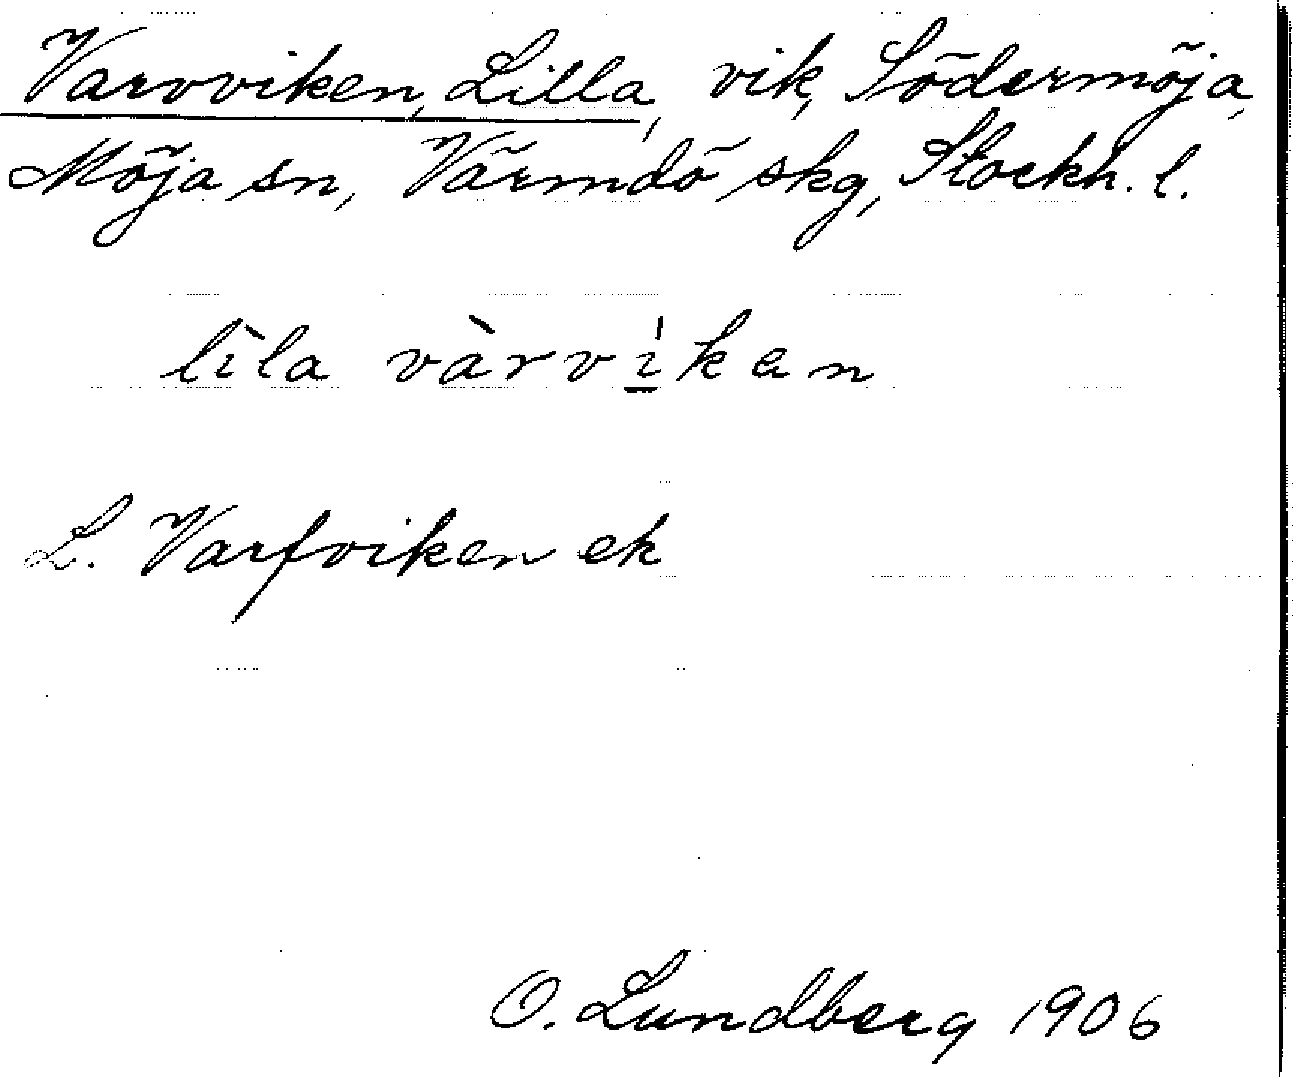 Varvviken, Lilla, vik, Södermöja,
Möja sn, Värmdö skg, Stockh. l.
lìla vàrvíkan
L. Varfviken ek
O. Lundberg 1906